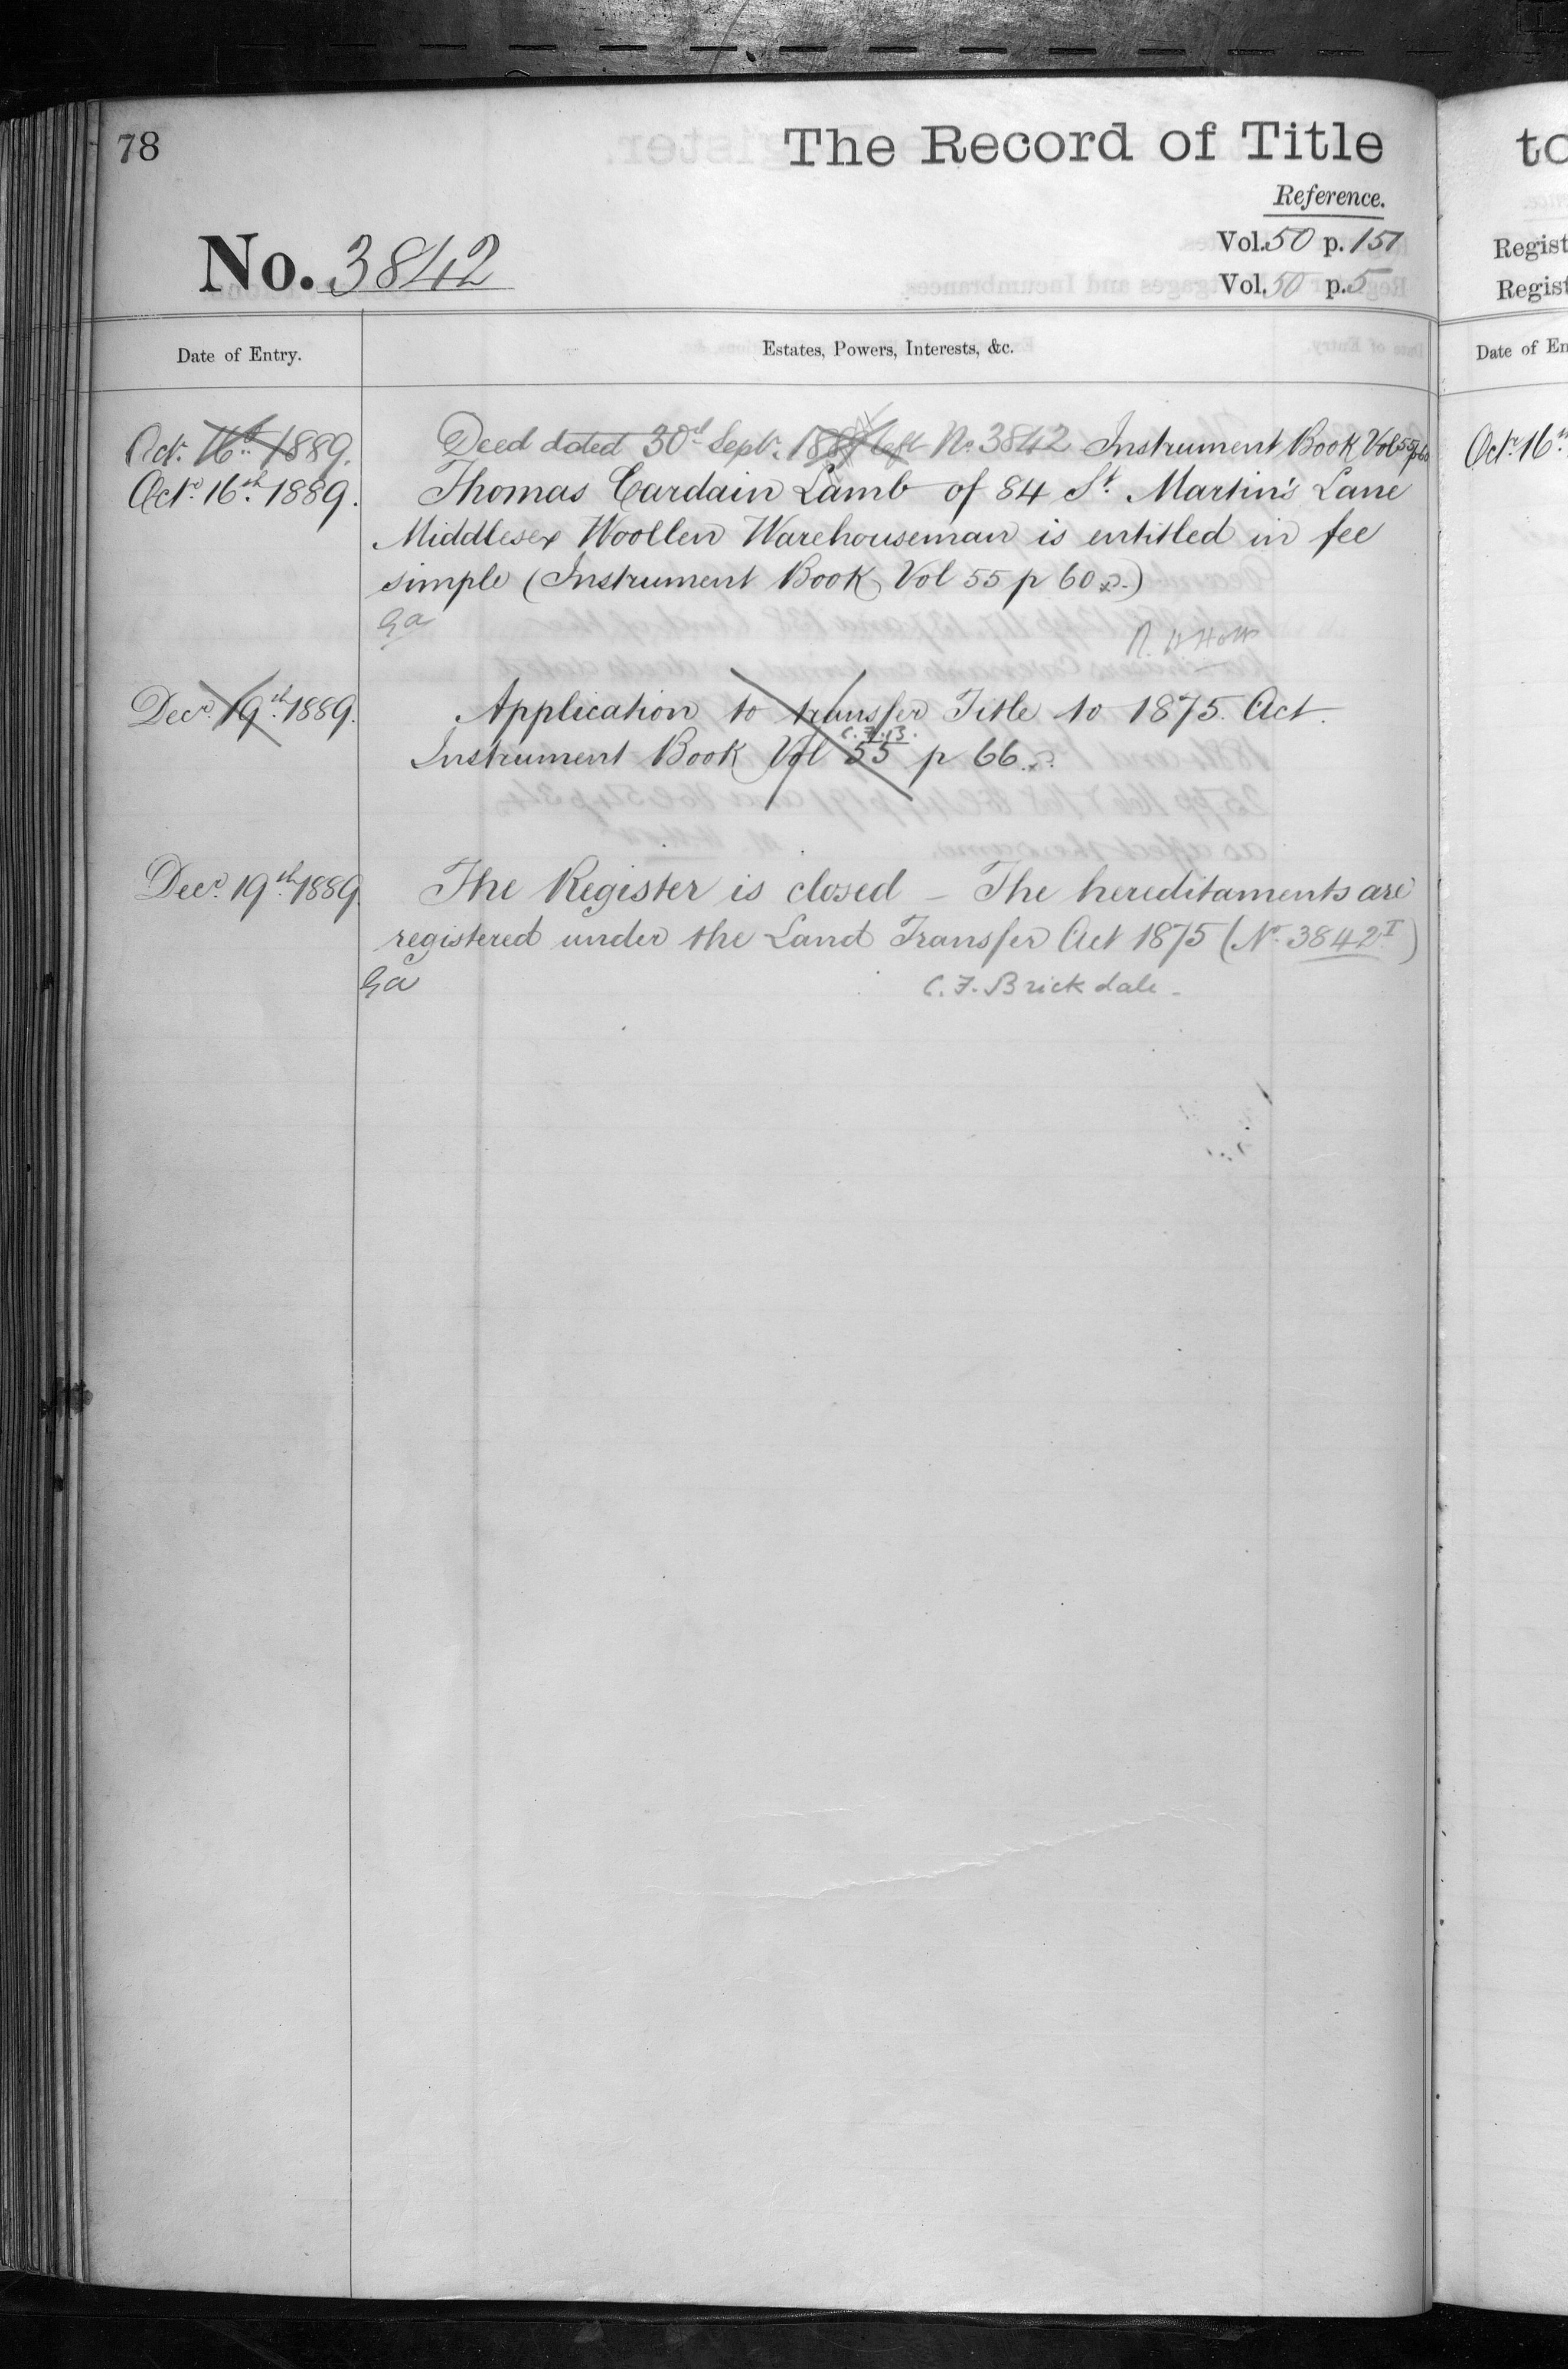 78
The Record of Title
Reference.
Vol. 50 p. 151
No. 3842
Vol. 50 p. 5
Date of Entry.
Estates, Powers, Interests, &c.
Oct. 16th 1889. Deed dated 30th Septr. 1889 left No. 3842 Instrument Book Vol 55 p 60
Octr. 16th 1889. Thomas Cardain Lamb of 84 St. Martin's Lane
Middlesex Woollen Warehouseman is entitled in fee
simple (Instrument Book Vol 55 p 60
Ga
Decr. 19th 1889. Application to transfer Title to 1875 Act.
C.F.B.
Instrument Book Vol 55 p 66
Decr. 19th 1889 The Register is closed – The hereditaments are
registered under the Land Transfer Act 1875 (No. 3842 I)
Ga C. F. Brickdale
to
Regist
Regist
Date of En
Octr. 16th